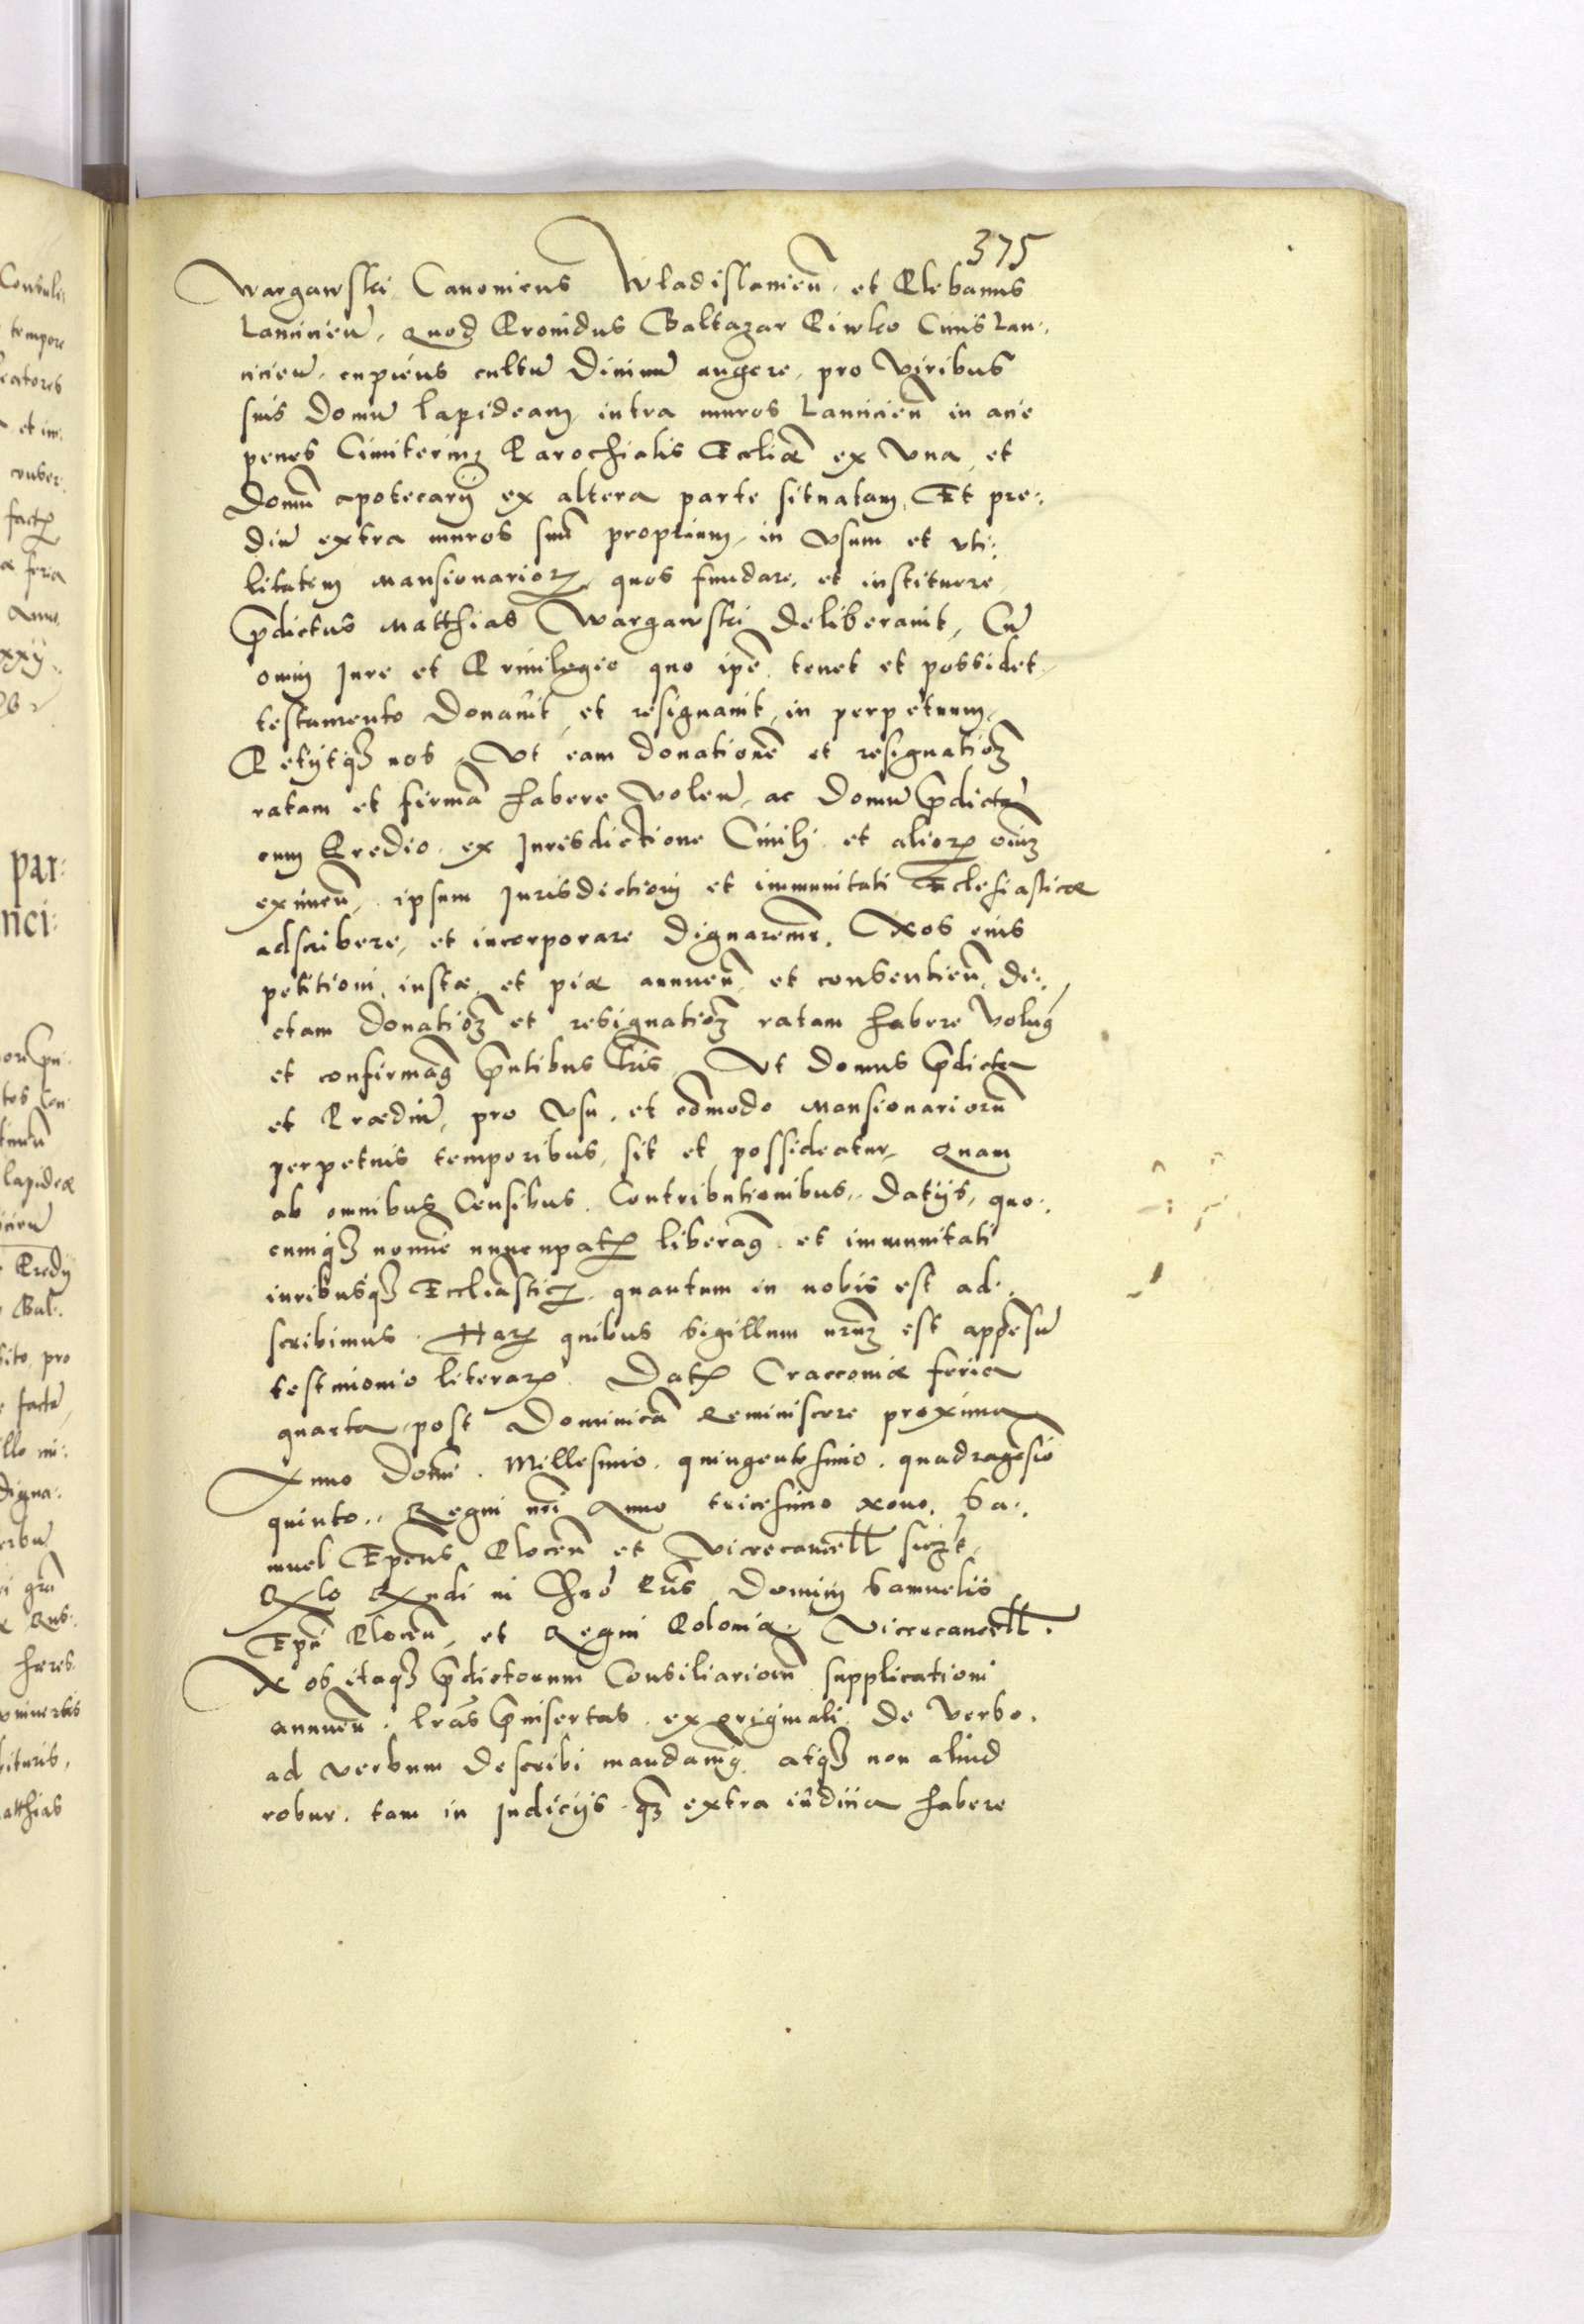 375
Wargawski Canonicus Wladislauieñ. et Plebanus
Lanicieñ. Quod Prouidus Baltazar Piwko Ciuis Lan:
icieñ. cupiens cultũ Diuinũ augere, pro viribus
suis Domũ lapideam, intra muros Lanicieñ in acie
penes Cimiteriuʒ Parochialis Eccliæ ex vna, et
Domũ apotecarij ex altera parte situatam, Et pre:
diũ extra muros suũ proprium, in vsum et vti:
litatem Mansionarioꝝ, quos fundare, et instituere
p̃dictus Matthias Wargawski deliberauit, Cũ
omni Iure et Priuilegio quo ip̃e tenet et possidet
testamento Donauit, et resignauit, in perpetuum,
Petijtqʒ nos, Vt eam donationẽ et resignatioʒ
ratam et firmã habere Voleñ, ac Domũ p̃dictã
cum Predio, ex Iurisdictione Ciuili, et alioꝝ oĩuʒ
eximeñ, ipsum Iurisdictioni et immunitati Eclesiasticæ
adscribere, et incorporare Dignaremur. Nos eius
petitioni, iustæ, et piæ annueñ, et consentieñ, di:
ctam Donatioʒ et resignatioʒ ratam habere Volumꝰ
et confirmamꝰ p̃ntibus Lr̃is, Vt Domus p̃dicta
et Prædiũ, pro Vsu, et cõmodo Mansionariorũ
perpetuis temporibus, sit et possideatur, Quam
ab omnibus Censibus, Contributionibus, Datijs, quo:
cumqʒ nomine nuncupatꝝ liberamꝰ, et immunitati
iuribusqʒ Eccl̃iasticꝭ. quantum in nobis est ad:
scribimus. Haꝝ quibus sigillum nr̃uʒ est appensũ
testimonio literaꝝ. Datꝝ Cracouiæ feria
quarta post Dominicã Reminiscere proxima
Anno Domĩ. Millesimo. quingentesimo. quadragesĩo
quinto.. Regni nr̃i Anno tricesimo Nono. Sa:
muel Ep̃cus Plocẽn et Vicecancell sszt.
Rlo Rñdi in Chr̃o Pr̃is Domini Samuelis
Ep̃i Plocẽn, et Regni Poloniæ Vicecancell.
Nos itaqʒ p̃dictorum Consiliariorũ supplicationi
annueñ. lr̃as p̃insertas. ex originali. de Verbo.
ad verbum describi mandauimꝰ. atqʒ non aliud
robur. tam in Iudicijs. qʒ extra iũdicia habere